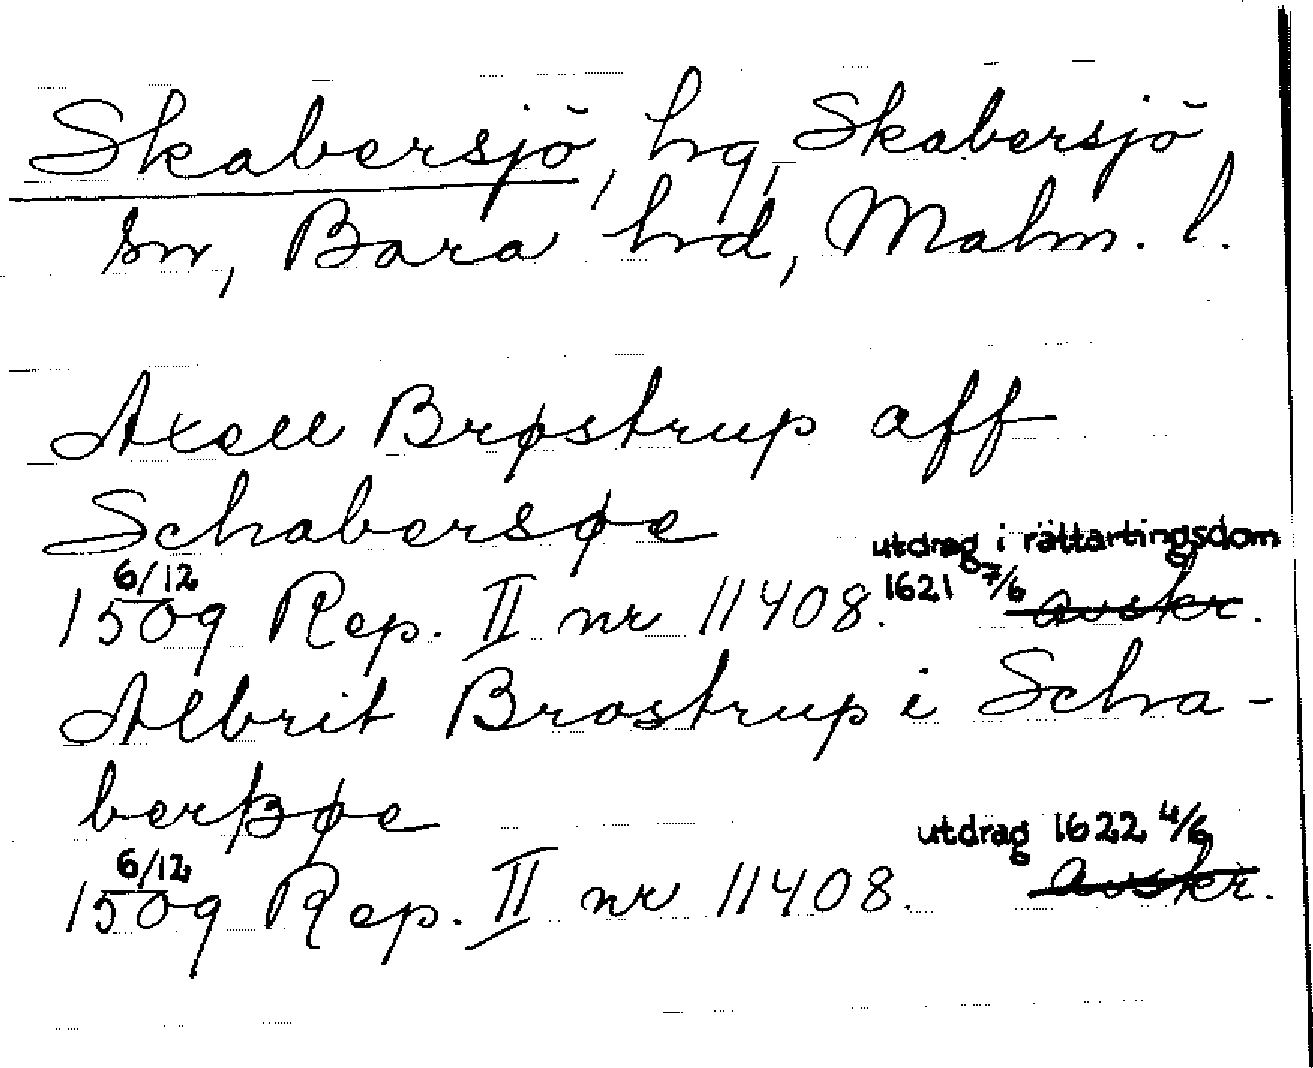 Skabersjö, hg, Skabersjö
sn, Bara hd, Malm. l.
Axell Brøstrup aff
Schabersøe
utdrag i rättartingsdom
6/12
1509 Rep. II nr 11408. 1621 7/6 avskr.
Albrit Brostrup i Scha-
berßøe
utdrag 1622 4/6
6/12
1509 Rep. II nr 11408. avskr.